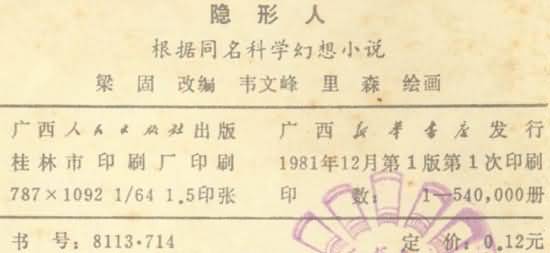 隐形人
根据同名科学幻想小说
梁固 改编 韦文峰 里森 绘画
广西人民出版社出版 广西新华书店发行
桂林市印刷厂印刷 1981年12月第1版第1次印刷
787×1092 1/64 1.5印张 印数：1—540,000册
书号：8113·714 定价：0.12元